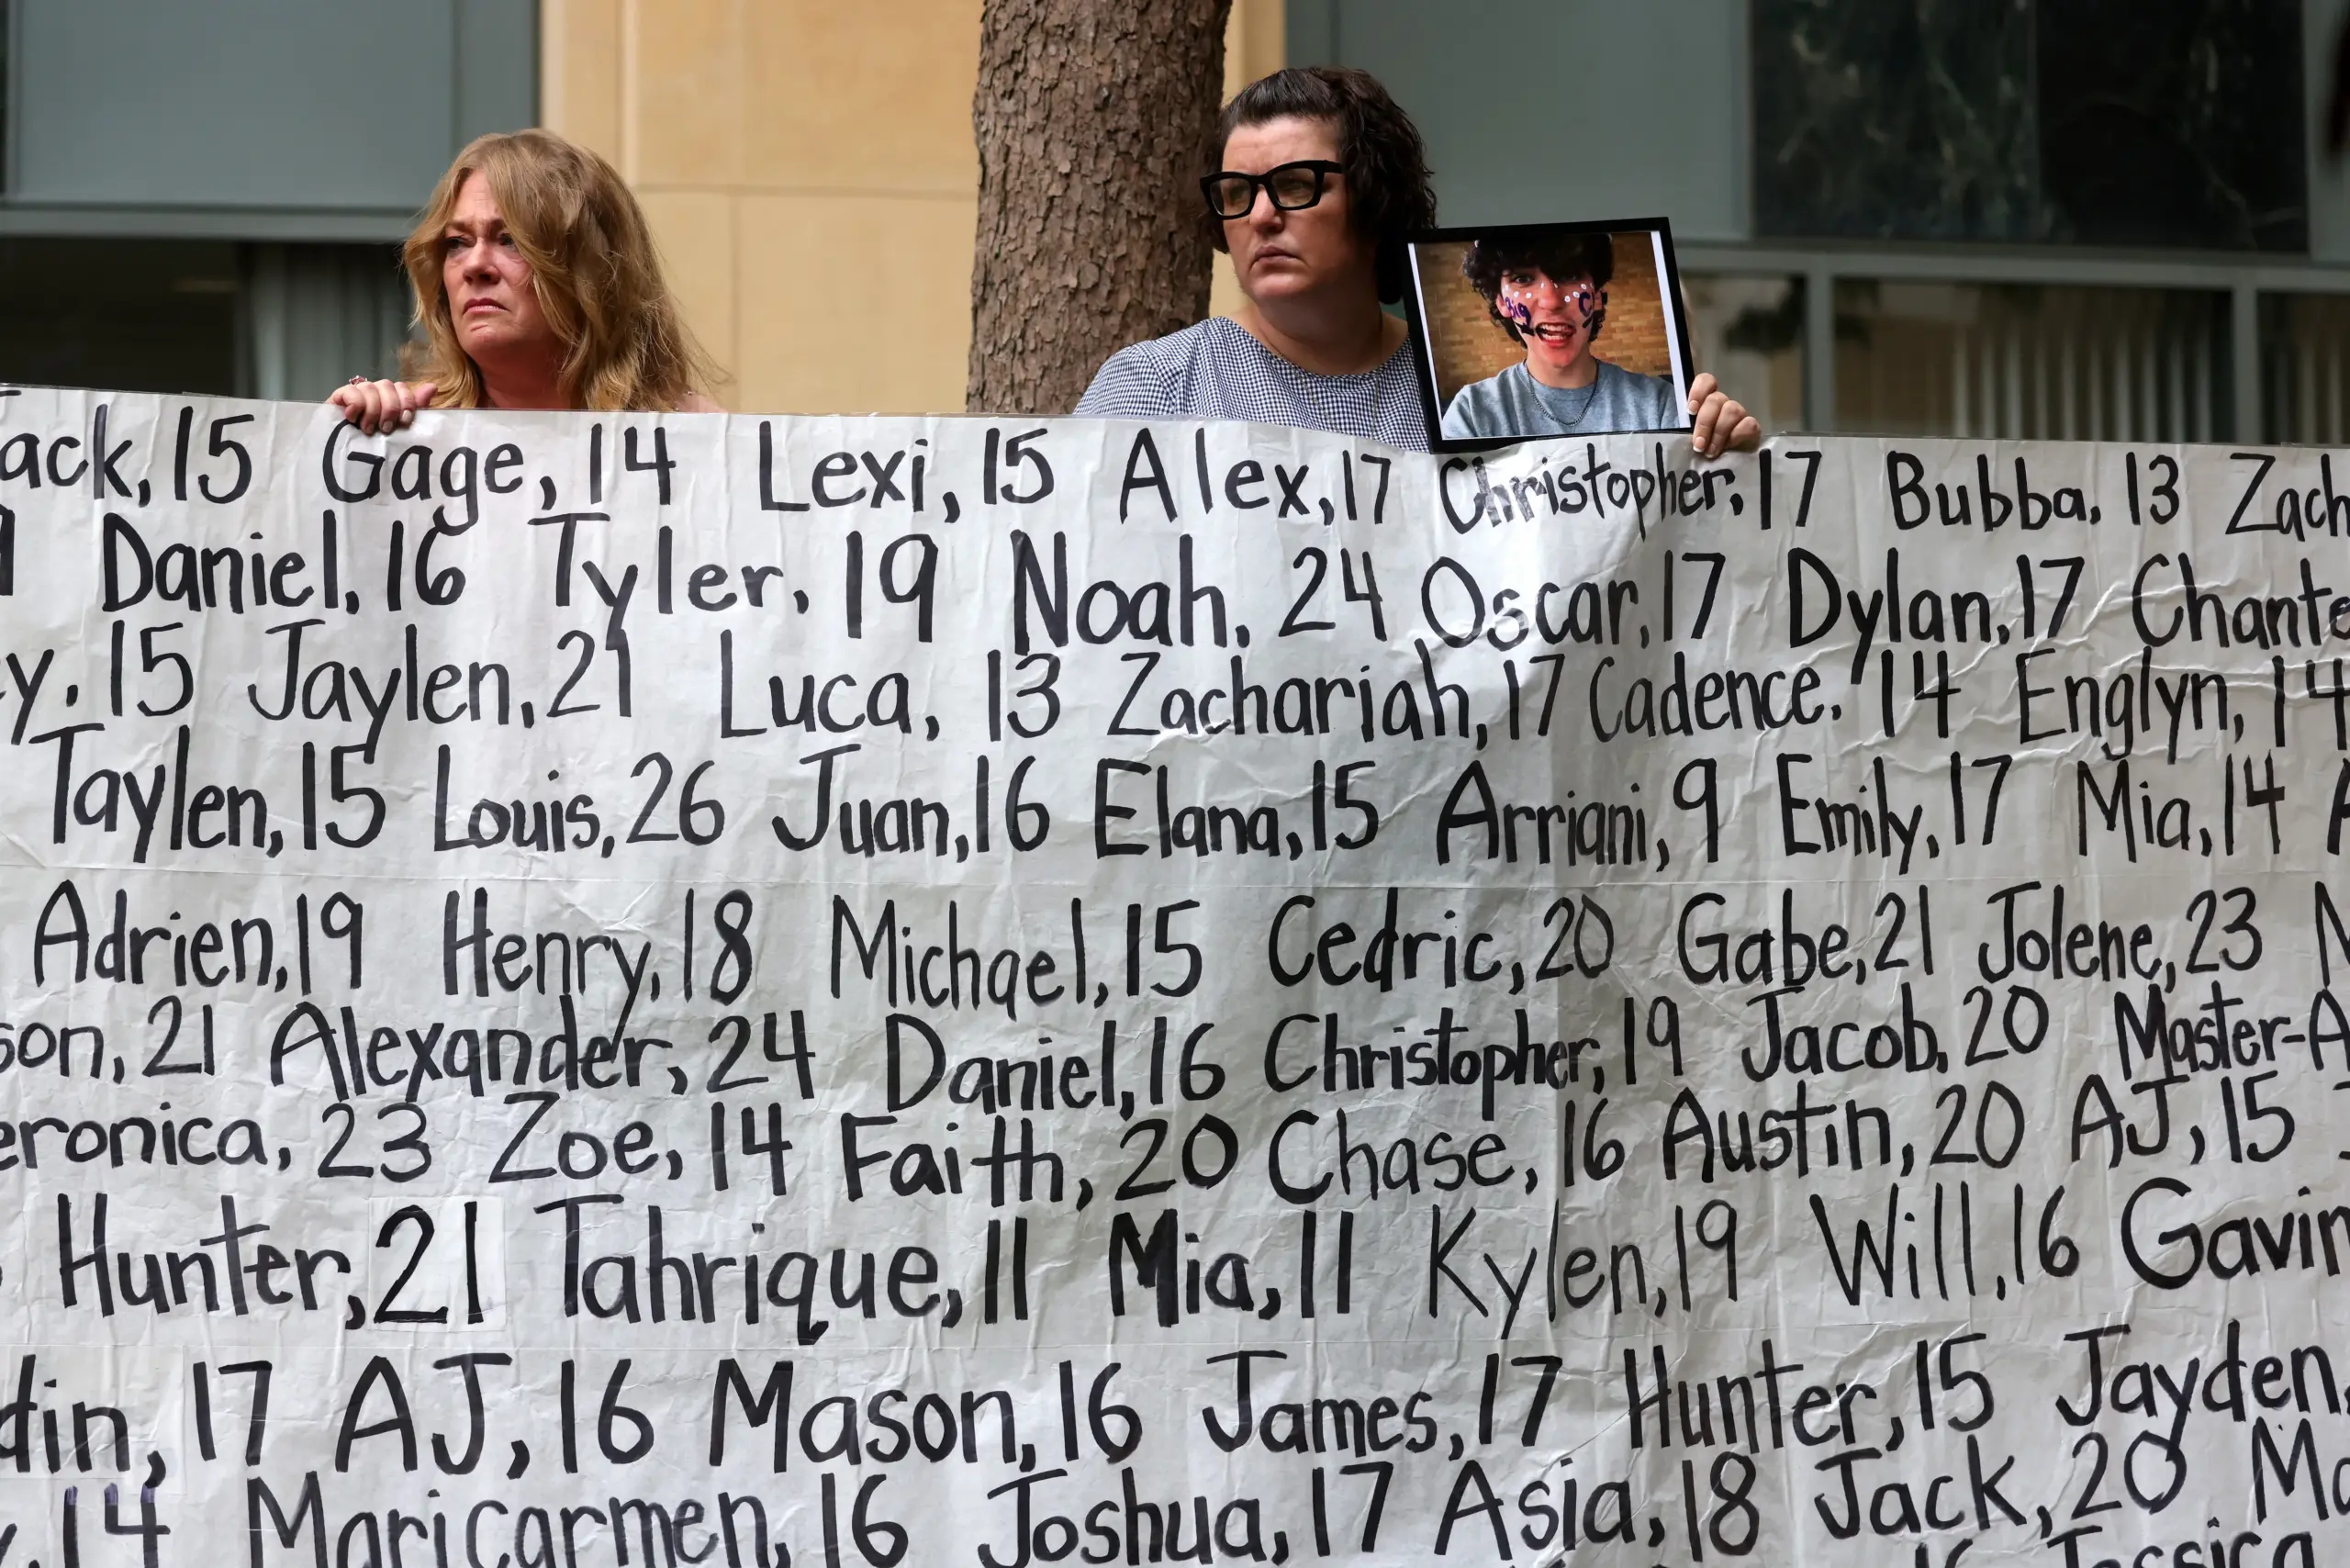 ack, 15 Gage, 14 Lexi, 15 Alex, 17 Christopher, 17 Bubba, 13 Zach
Daniel, 16 Tyler, 19 Noah, 24 Oscar, 17 Dylan, 17 Chante
y, 15 Jaylen, 21 Luca, 13 Zachariah, 17 Cadence, 14 Englyn, 14
Taylen, 15 Louis, 26 Juan, 16 Elana, 15 Arriani, 9 Emily, 17 Mia, 14
Adrien, 19 Henry, 18 Michael, 15 Cedric, 20 Gabe, 21 Jolene, 23
son, 21 Alexander, 24 Daniel, 16 Christopher, 19 Jacob, 20 Master-A
eronica, 23 Zoe, 14 Faith, 20 Chase, 16 Austin, 20 AJ, 15
Hunter, 21 Tahrique, 11 Mia, 11 Kylen, 19 Will, 16 Gavin
din, 17 AJ, 16 Mason, 16 James, 17 Hunter, 15 Jayden,
14 Maricarmen, 16 Joshua, 17 Asia, 18 Jack, 20 Ma
16 Jessica